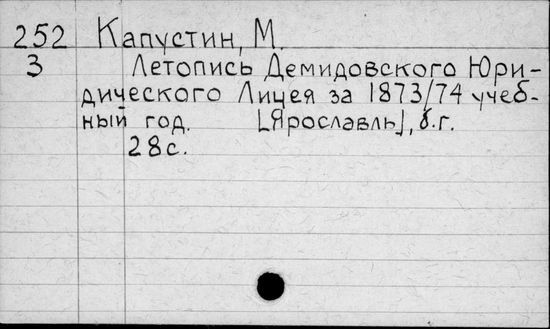 252 Капустин, М.
3 Летопись Демидовского Юри-
дического Лицея за 1873/74 учеб-
ный год. [Ярославль], б.г.
28с.